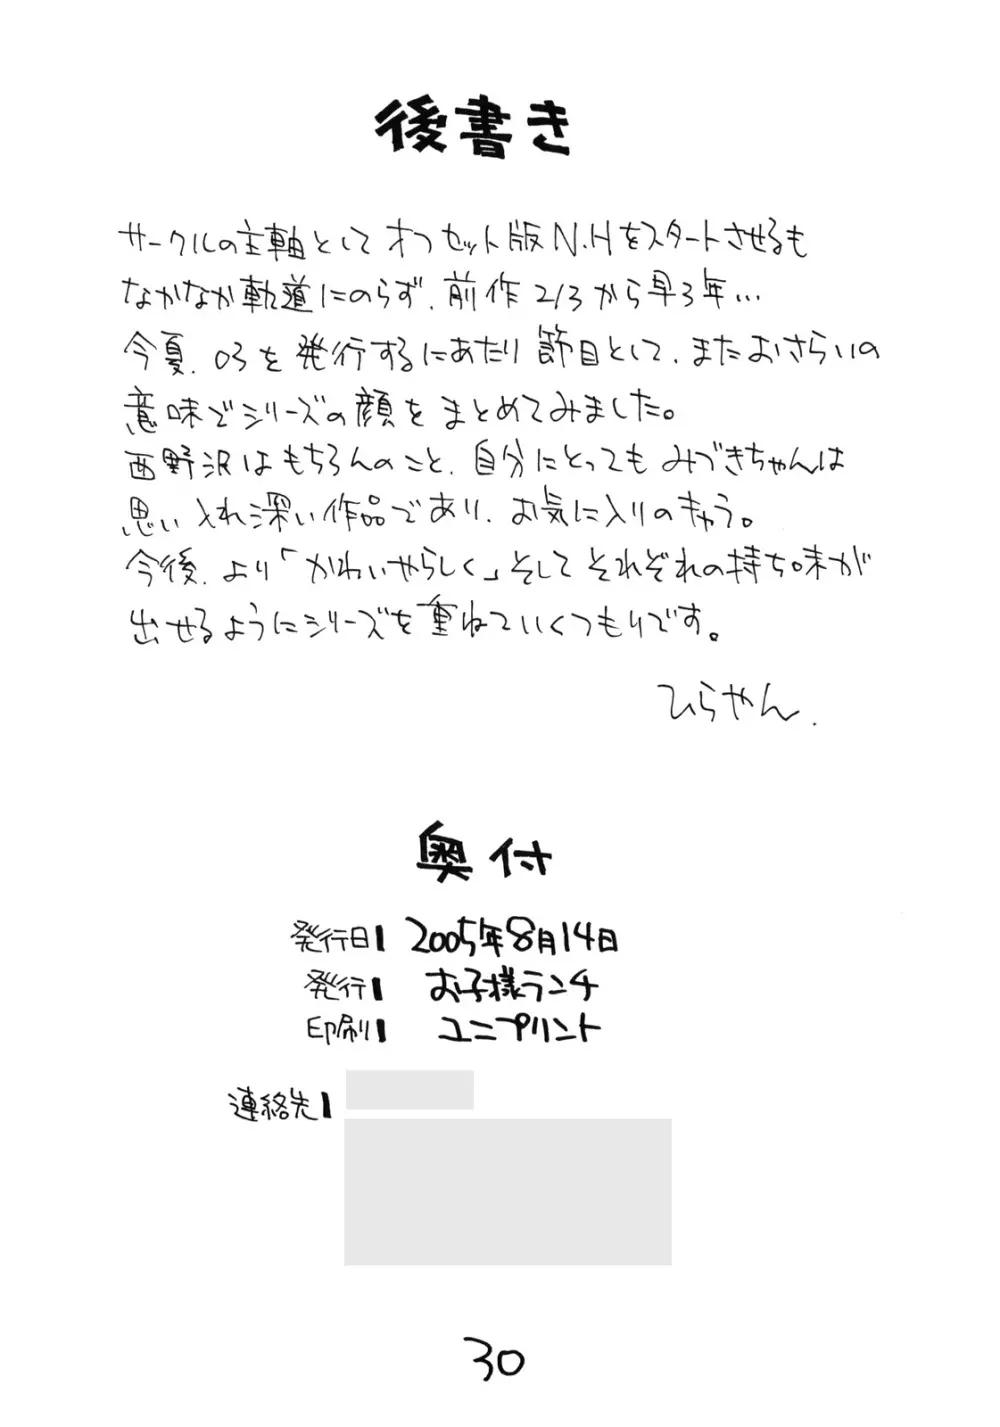 後書き
サークルの主軸としてオフセット版N.Hをスタートさせるも
なかなか軌道にのらず、前作2/3から早3年…
今夏、03を発行するにあたり節目として、またおさらいの
意味でシリーズの顔をまとめてみました。
西野沢はもちろんのこと、自分にとってもみづきちゃんは
思い入れ深い作品であり、お気に入りのキャラ。
今後、より「かわいやらしく」そしてそれぞれの持ち味が
出せるようにシリーズを重ねていくつもりです。
ひらやん.
奥付
発行日 2005年8月14日
発行 お子様ランチ
印刷 ユニプリント
連絡先
30